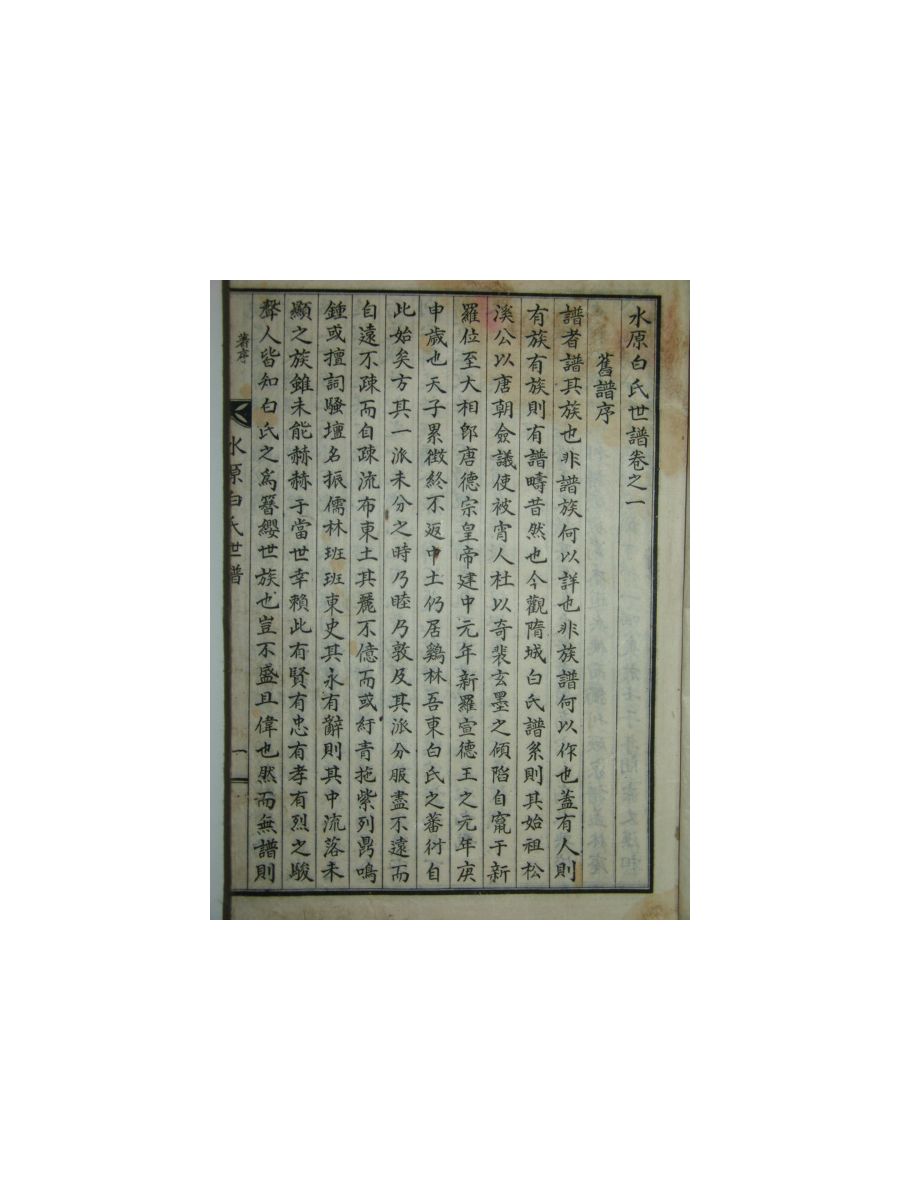 水原白氏世譜卷之一
舊譜序
譜者譜其族也非譜族何以詳也非族譜何以作也蓋有人則
有族有族則有譜疇昔然也今觀隋城白氏譜系則其始祖松
溪公以唐朝僉議使被宵人杜以奇裴玄墨之傾陷自竄于新
羅位至大相卽唐德宗皇帝建中元年新羅宣德王之元年庚
申歲也天子累徵終不返中土仍居鷄林吾東白氏之蕃衍自
此始矣方其一派未分之時乃睦乃敦及其派分服盡不遠而
自遠不疎而自疎流布東土其麗不億而或紆青拖紫列鼎鳴
鍾或擅詞騷壇名振儒林班班東史其永有辭則其中流落未
顯之族雖未能赫赫于當世幸賴此有賢有忠有孝有烈之駿
聲人皆知白氏之爲簪纓世族也豈不盛且偉也然而無譜則
舊序
水原白氏世譜
一